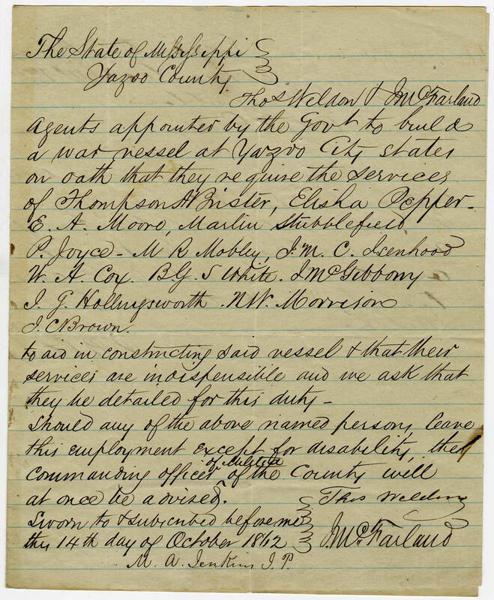 The State of Mississippi
Yazoo County
Thos Weldon & J McFarland
Agents appointed by the Govt to build
a war vessel at Yazoo City states
on oath that they require the services
of Thompson H Prister, Elisha Pepper
E. A. Moore, Martin Stubblefield
P. Joyce - M R Mobley, J. M. C. Isenhood
W. H. Cox. B G S White. J McGibbony
J. G. Hollingsworth. N W. Morrison
J. C Brown.
to aid in constructing said vessel & that their
services are indispensible and we ask that
they be detailed for this duty -
Should any of the above named persons leave
this employment except for disability, the
commanding officer of Militia of the County will
at once be advised.
Thos Weldon
Sworn to & subscribed before me
this 14th day of October 1862
J McFarland
M. A. Jenkins J. P.